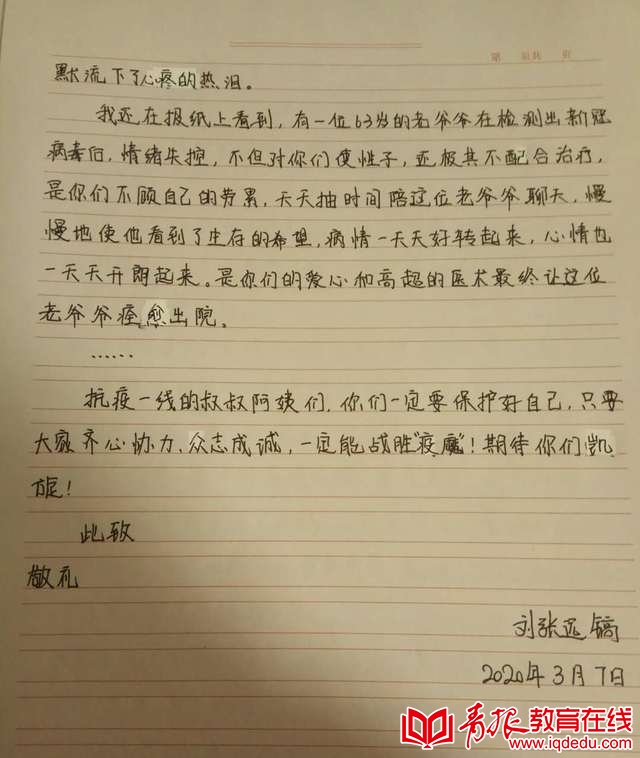 第 页共 页
默流下了心疼的热泪。
我还在报纸上看到,有一位63岁的老爷爷在检测出新冠
病毒后,情绪失控,不但对你们使性子,还极其不配合治疗,
是你们不顾自己的劳累,天天抽时间陪这位老爷爷聊天,慢
慢地使他看到了生存的希望,病情一天天好转起来,心情也
一天天开朗起来。是你们的爱心和高超的医术最终让这位
老爷爷痊愈出院。
……
抗疫一线的叔叔阿姨们,你们一定要保护好自己,只要
大家齐心协力、众志成诚,一定能战胜“疫魔”!期待你们凯
旋!
此致
敬礼
刘张远镐
2020年3月7日
青报教育在线
www.iqdedu.com